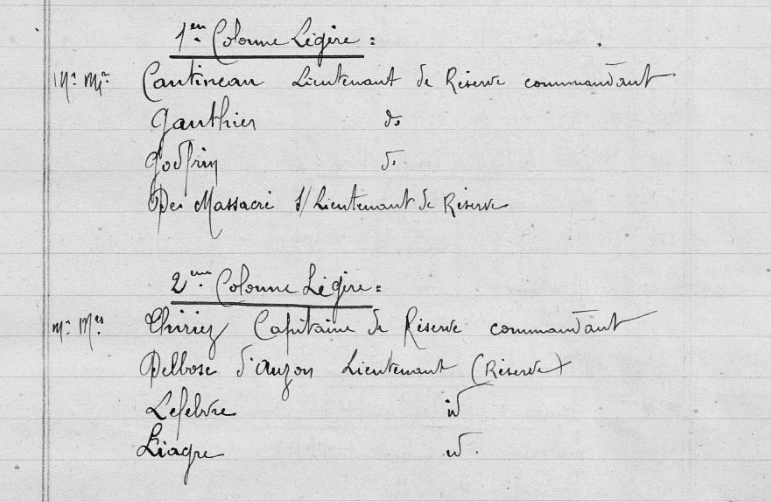 1er Colonne Légère :
Mr. Mrs. Cantineau Lieutenant de Réserve commandant
Gauthier do
Godfrin do
Des Massacré s/Lieutenant de Réserve
2ème Colonne Légère :
Mr. Mrs. Thiriez Capitaine de Réserve commandant
Delbose d'Auzon Lieutenant (Réserve)
Lefebvre id
Liagre id.